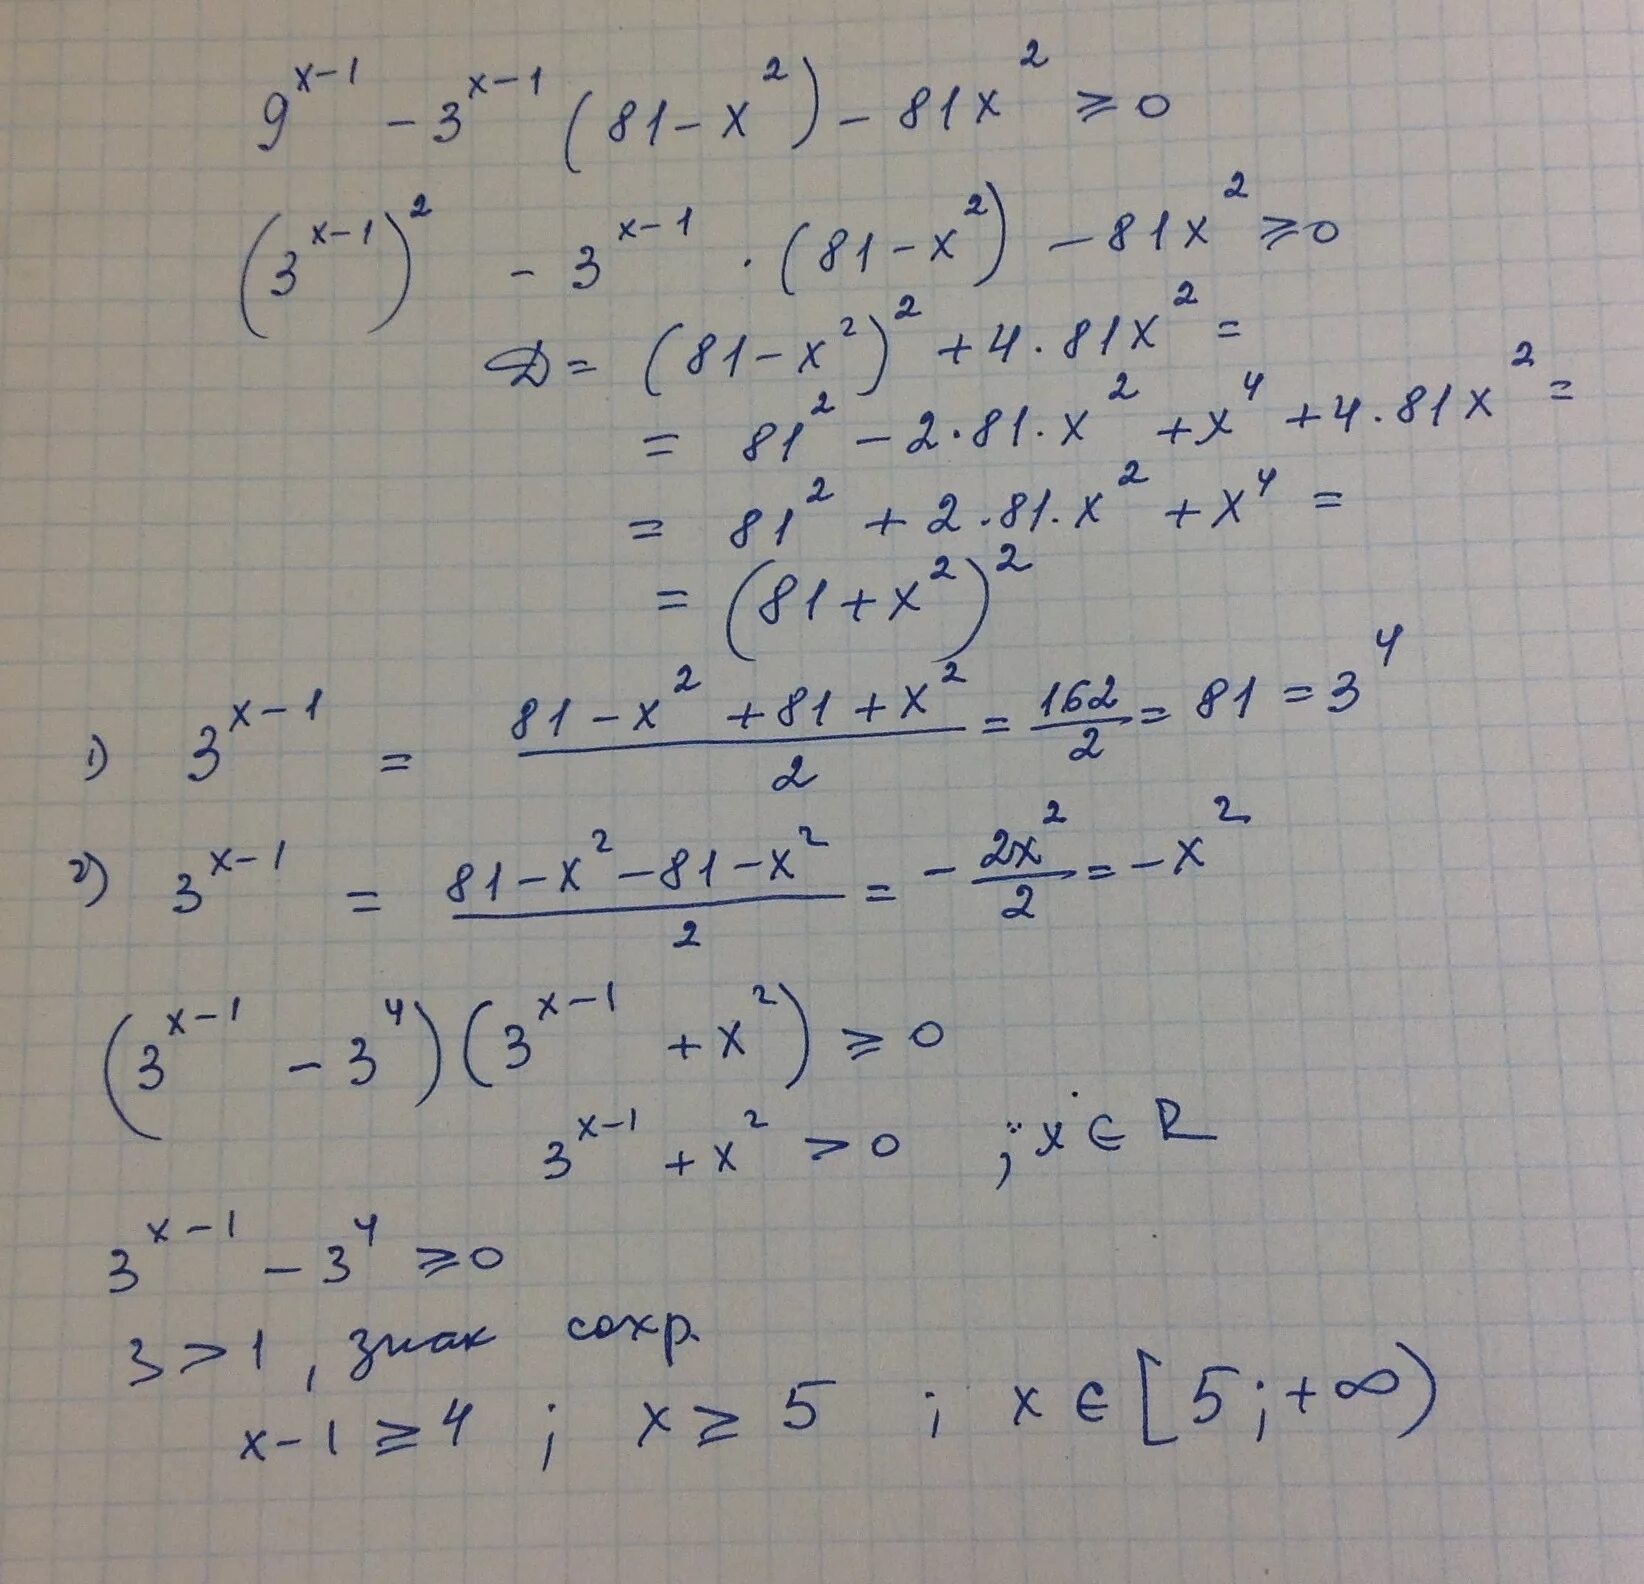 9^(x-1) - 3^(x-1) (81 - x²) - 81x² ≥ 0
(3^(x-1))² - 3^(x-1) · (81 - x²) - 81x² ≥ 0
D = (81 - x²)² + 4 · 81x² =
= 81² - 2 · 81 · x² + x⁴ + 4 · 81x² =
= 81² + 2 · 81 · x² + x⁴ =
= (81 + x²)²
1) 3^(x-1) = (81 - x² + 81 + x²)/2 = 162/2 = 81 = 3⁴
2) 3^(x-1) = (81 - x² - 81 - x²)/2 = - 2x²/2 = - x²
(3^(x-1) - 3⁴)(3^(x-1) + x²) ≥ 0
3^(x-1) + x² > 0 ; x ∈ R
3^(x-1) - 3⁴ ≥ 0
3 > 1, знак сохр.
x - 1 ≥ 4 ; x ≥ 5 ; x ∈ [5; +∞)